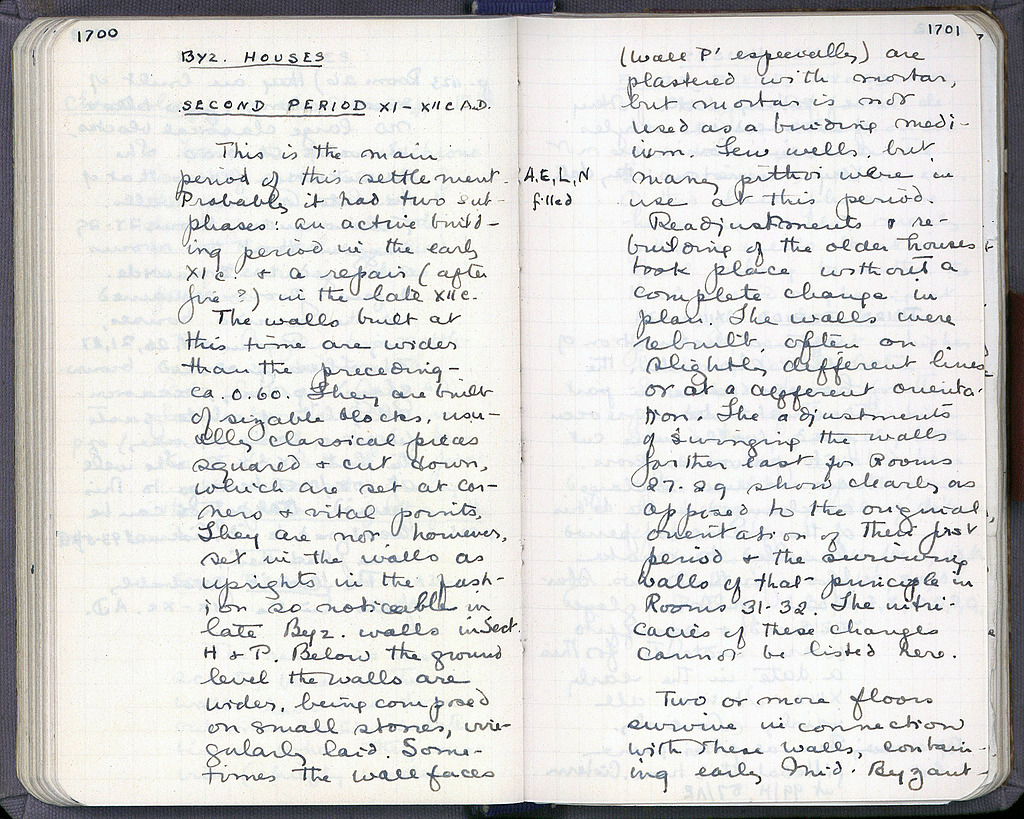 1700
BYZ. HOUSES
SECOND PERIOD XI-XII C A.D.
This is the main
period of this settlement.
Probably it had two sub-
phases: an active build-
ing period in the early
XI c. & a repair (after
fire?) in the late XII c.
The walls built at
this time are wider
than the preceding -
ca. 0.60. They are built
of sizable blocks, usu-
ally classical pieces
squared & cut down,
which are set at cor-
ners & vital points.
They are not however,
set in the walls as
uprights in the fash-
ion so noticeable in
late Byz. walls in Sect.
H & P. Below the ground
level the walls are
wider, being composed
on small stones, irre-
gularly laid. Some-
times the wall faces
1701
(wall P' especially) are
plastered with mortar,
but mortar is not
used as a building medi-
um. Few wells, but
A, E, L, N
filled
many pithoi were in
use at this period.
Readjustments & re-
building of the older houses
took place without a
complete change in
plan. The walls were
rebuilt often on
slightly different lines
or at a different orienta-
tion. The adjustments
of swinging the walls
farther east for Rooms
27-29 show clearly as
opposed to the original
orientation of their first
period & the surviving
walls of that principle in
Rooms 31-32. The intri
cacies of these changes
cannot be listed here.
Two or more floors
survive in connection
with these walls, contain-
ing early Mid. Byzant-